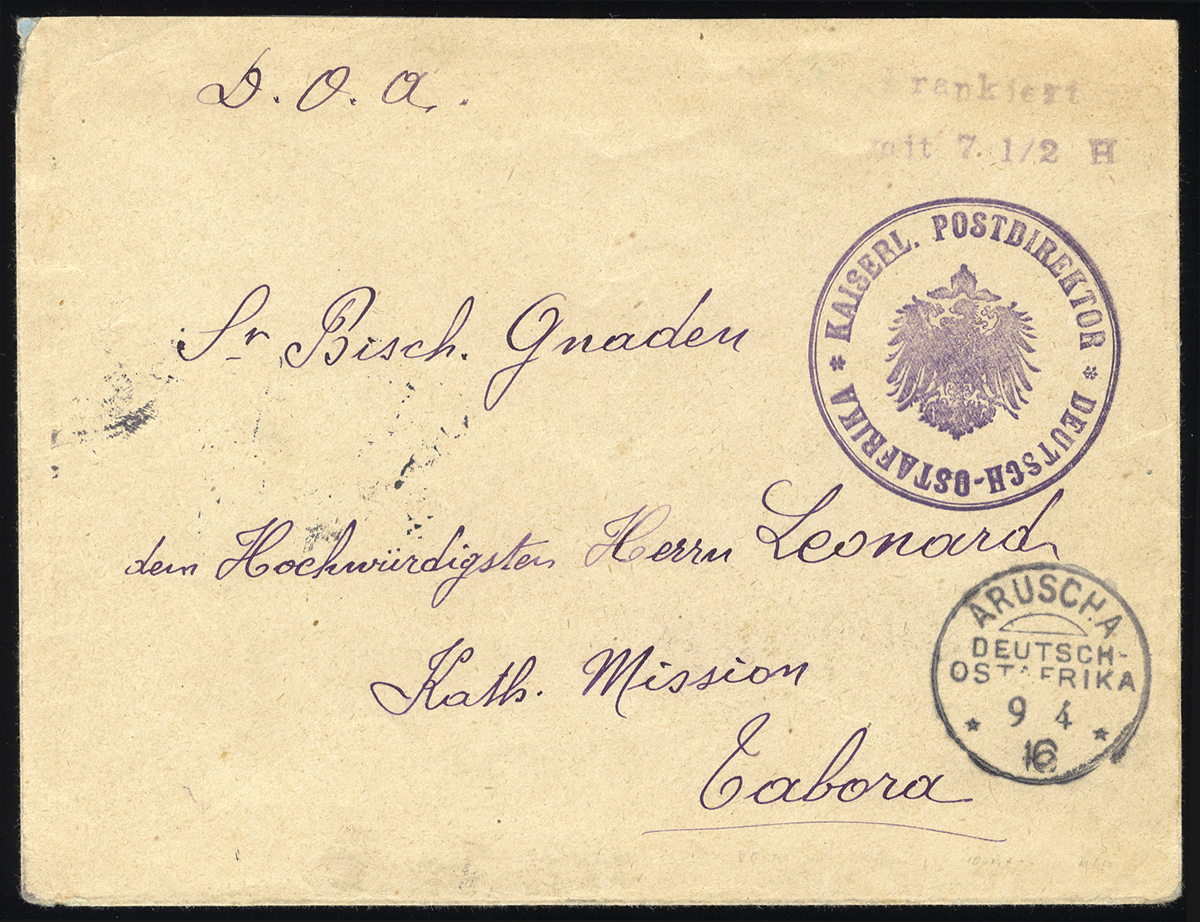 D. O. A.
Frankiert
mit 7 1/2 H
* KAISERL. POSTDIREKTOR * DEUTSCH-OSTAFRIKA
Sr Bisch. Gnaden
dem Hochwürdigsten Herrn Leonard
Kath. Mission
Tabora
ARUSCHA
DEUTSCH-
OSTAFRIKA
* 9 4 *
16